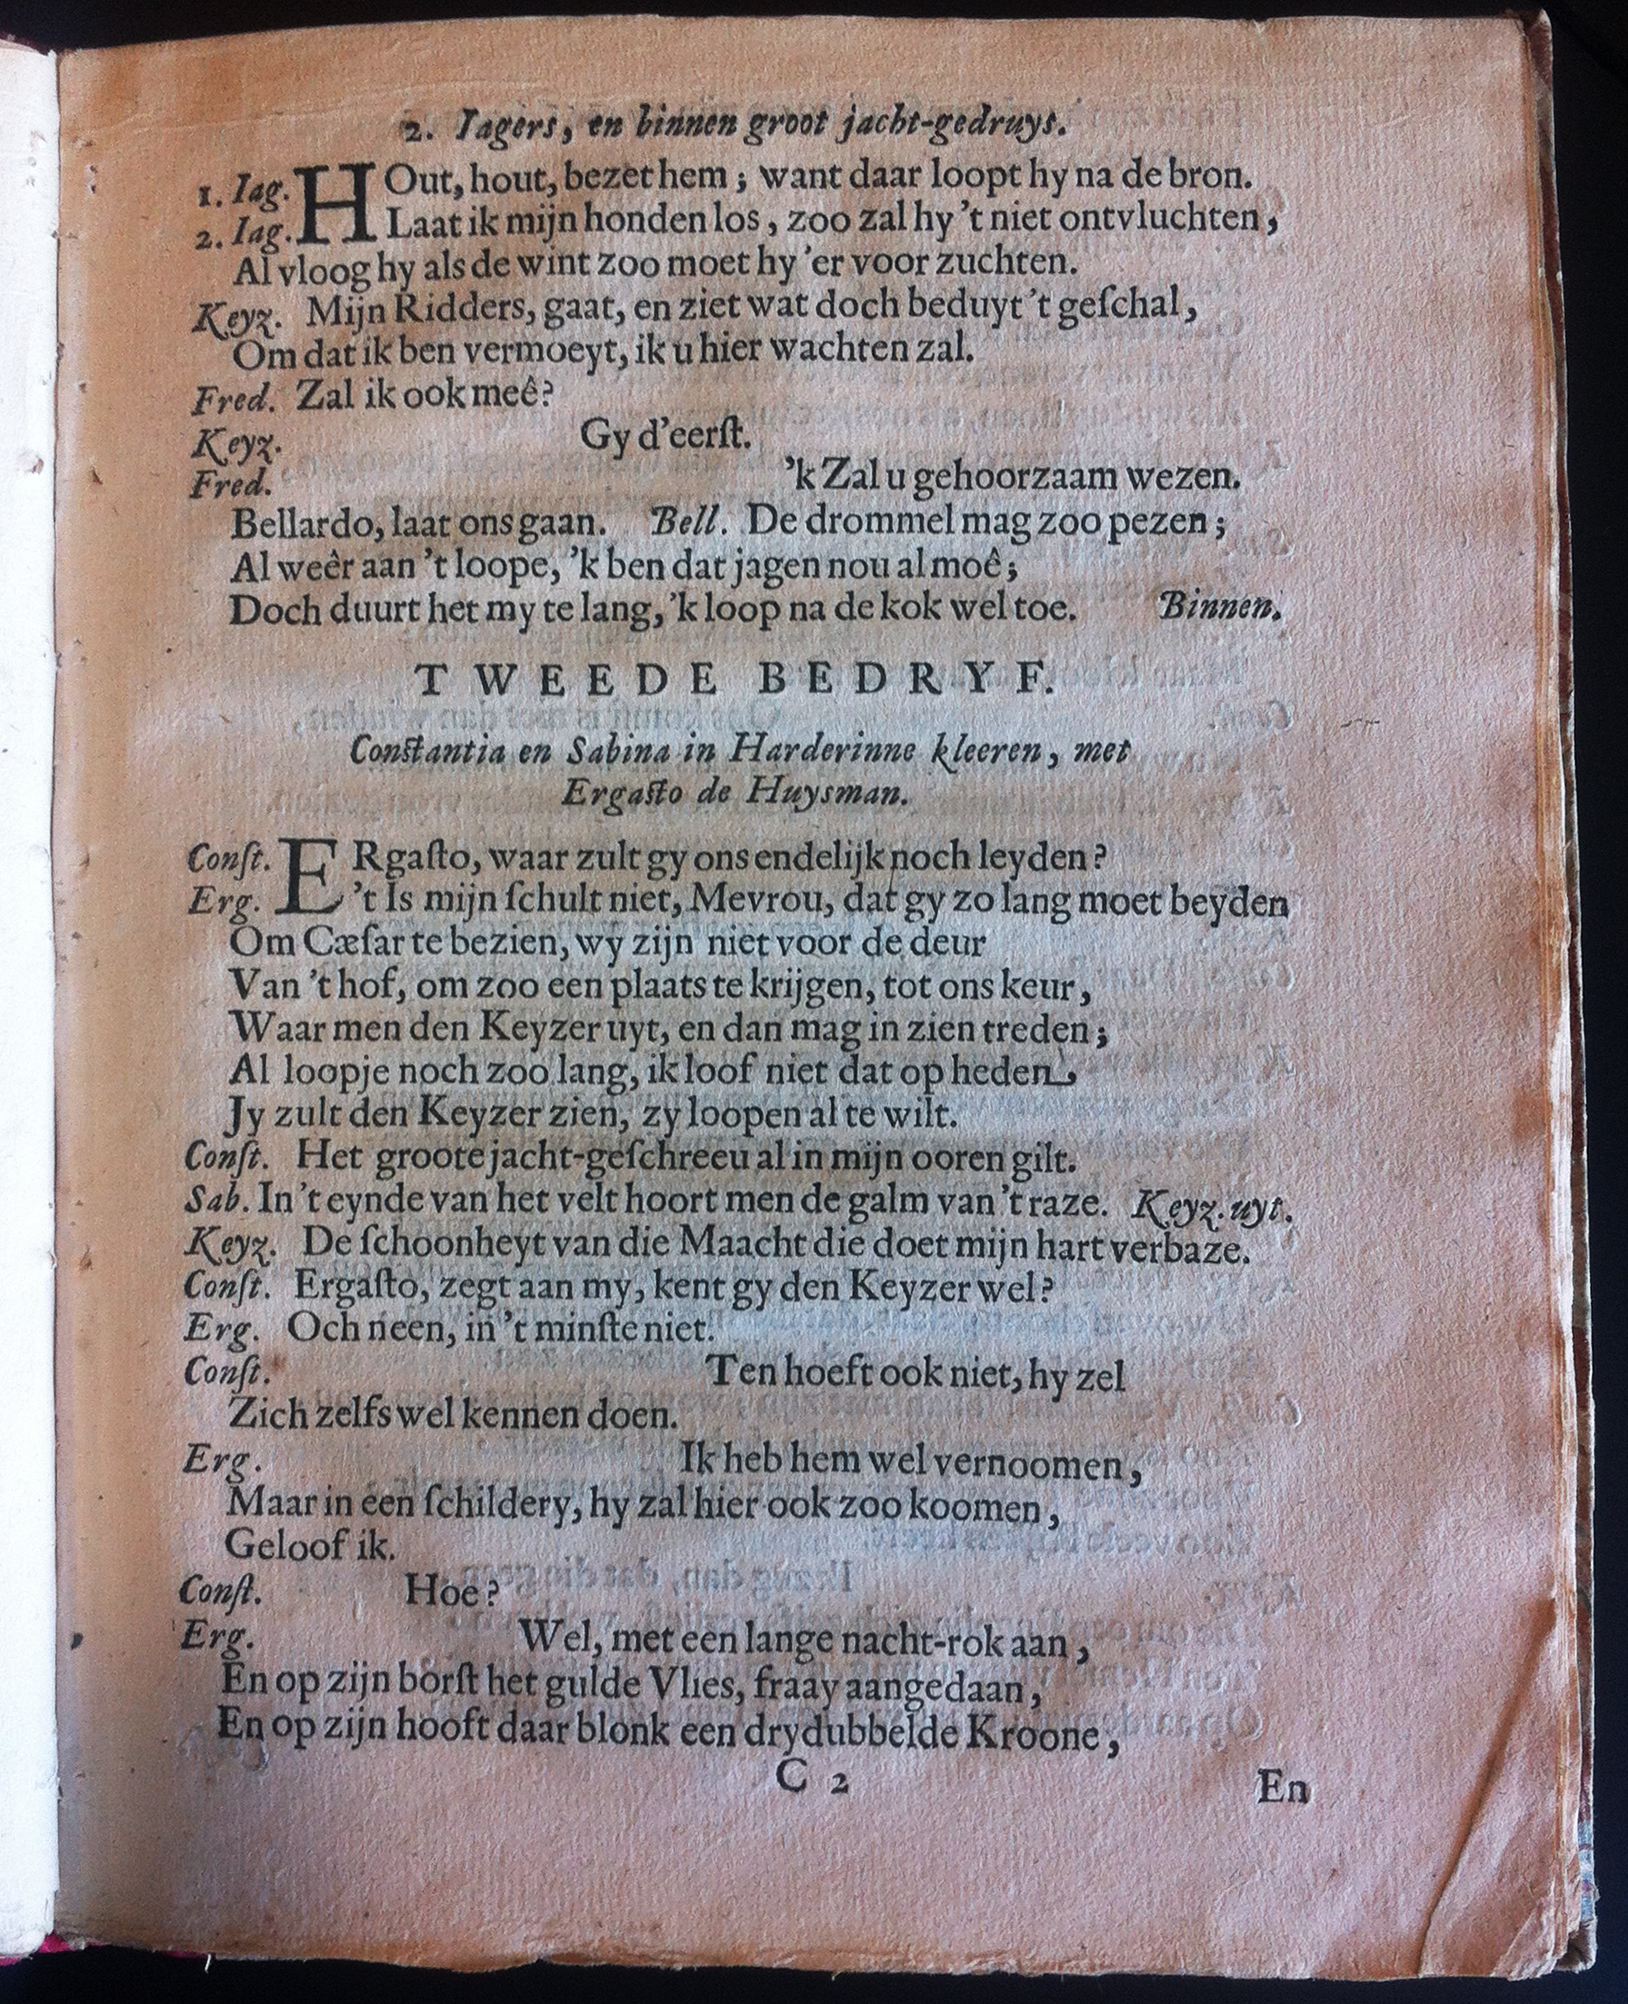 2. Iagers, en binnen groot jacht-gedruys.
1. Iag. HOut, hout, bezet hem; want daar loopt hy na de bron.
2. Iag. Laat ik mijn honden los, zoo zal hy 't niet ontvluchten,
Al vloog hy als de wint zoo moet hy 'er voor zuchten.
Keyz. Mijn Ridders, gaat, en ziet wat doch beduyt 't geſchal,
Om dat ik ben vermoeyt, ik u hier wachten zal.
Fred. Zal ik ook meê?
Keyz. Gy d'eerſt.
Fred. 'k Zal u gehoorzaam wezen.
Bellardo, laat ons gaan. Bell. De drommel mag zoo pezen;
Al weêr aan 't loope, 'k ben dat jagen nou al moê;
Doch duurt het my te lang, 'k loop na de kok wel toe. Binnen.
TWEEDE BEDRYF.
Conſtantia en Sabina in Harderinne kleeren, met
Ergaſto de Huysman.
Conſt. ERgaſto, waar zult gy ons endelijk noch leyden?
Erg. 't Is mijn ſchult niet, Mevrou, dat gy zo lang moet beyden
Om Cæſar te bezien, wy zijn niet voor de deur
Van 't hof, om zoo een plaats te krijgen, tot ons keur,
Waar men den Keyzer uyt, en dan mag in zien treden;
Al loopje noch zoo lang, ik loof niet dat op heden
Jy zult den Keyzer zien, zy loopen al te wilt.
Conſt. Het groote jacht-geſchreeu al in mijn ooren gilt.
Sab. In 't eynde van het velt hoort men de galm van 't raze. Keyz. uyt.
Keyz. De ſchoonheyt van die Maacht die doet mijn hart verbaze.
Conſt. Ergaſto, zegt aan my, kent gy den Keyzer wel?
Erg. Och neen, in 't minſte niet.
Conſt. Ten hoeft ook niet, hy zel
Zich zelfs wel kennen doen.
Erg. Ik heb hem wel vernoomen,
Maar in een ſchildery, hy zal hier ook zoo koomen,
Geloof ik.
Conſt. Hoe?
Erg. Wel, met een lange nacht-rok aan,
En op zijn borſt het gulde Vlies, fraay aangedaan,
En op zijn hooft daar blonk een drydubbelde Kroone,
C 2 En